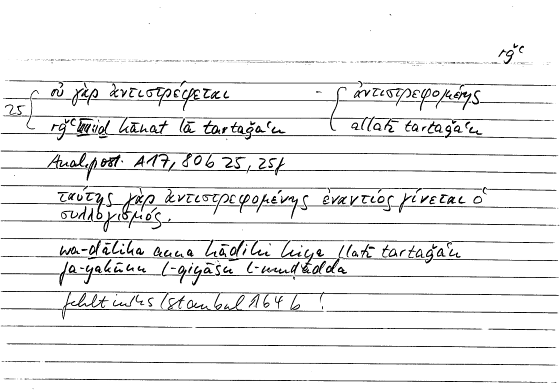 rǧʿ
οὐ γὰρ ἀντιστρέφεται - ἀντιστρεφομένης
25 rǧʿ kānat lā tartaǧiʿu allatī tartaǧiʿu
Anal. post. A 17, 80b 25, 25f
ταύτης γὰρ ἀντιστρεφομένης ἐναντιός γίνεται ὁ
συλλογισμός.
wa-ḏālika anna hāḏihi hiya llatī tartaǧiʿu
fa-yakūnu l-qiyāsu l-muḍādda
fehlt in Hs Istanbul 164 b !